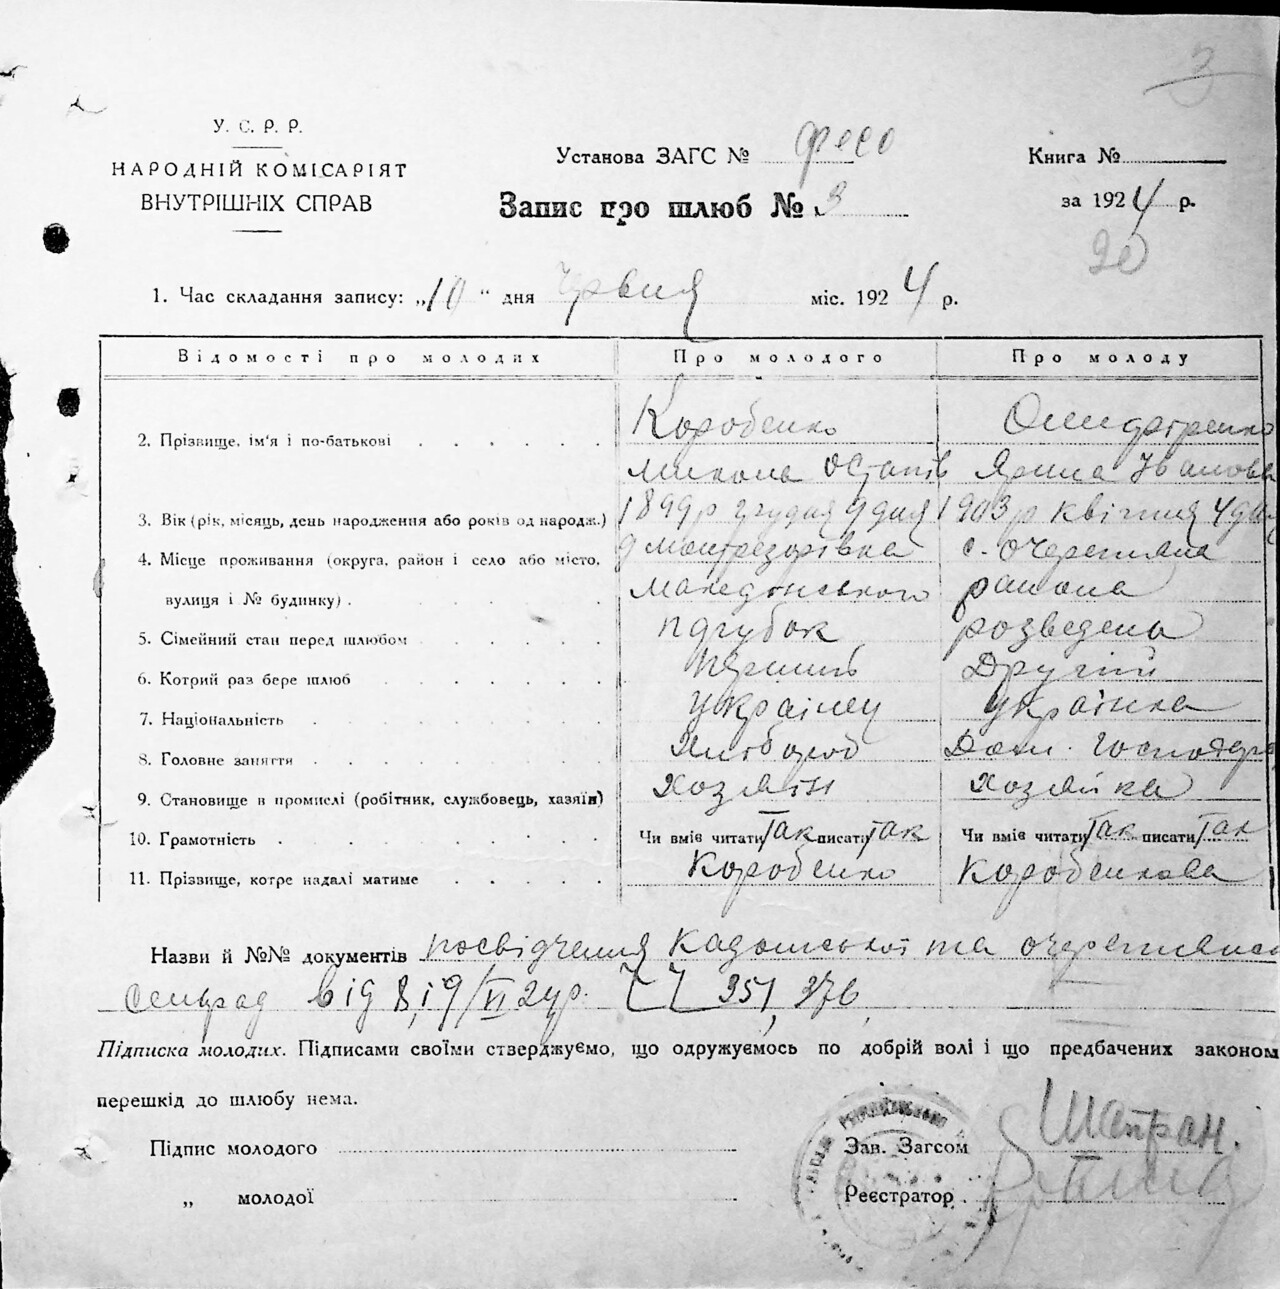 3
У. С. Р. Р.
НАРОДНІЙ КОМІСАРІЯТ
ВНУТРІШНІХ СПРАВ
Установа ЗАГС №
Запис про шлюб № 3
Книга №
за 1924 р.
20
1. Час складання запису: „10" дня Червня міс. 1924 р.
Відомості про молодих Про молодого Про молоду
2. Прізвище, ім'я і по-батькові Коробенко
Микола Остапів Ярина Іванова
3. Вік (рік, місяць, день народження або років од народж.) 1899 р грудня 9 дня 1903 р квітня 4 дня
4. Місце проживання (округа, район і село або місто, с. Очеретяна
вулиця і № будинку). района
5. Сімейний стан перед шлюбом парубок розведена
6. Котрий раз бере шлюб перший Другий
7. Національність Українец українка
8. Головне заняття Хлібороб Дом. Господар
9. Становище в промислі (робітник, службовець, хазяїн) Хозяін Хозяйка
10. Грамотність Чи вміє читати Так писати Так Чи вміє читати Так писати Так
11. Прізвище, котре надалі матиме Коробенко Коробенкова
Назви й №№ документів посвідчення та
сельрад від 8 і 9/VI 24 р. 351, 376
Підписка молодих. Підписами своїми стверджуємо, що одружуємось по добрій волі і що предбачених законом
перешкід до шлюбу нема.
Підпис молодого
„ молодої
Зав. Загсом Шапран.
Реєстратор